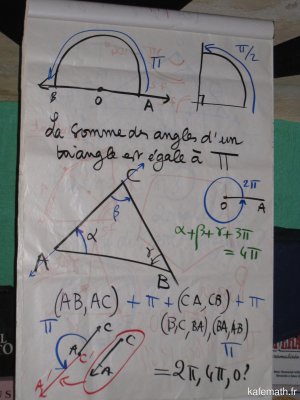 π
B O A
π/2
La somme des angles d'un
triangle est égale à π
C
2π
β
O A
α
γ
α+β+γ+3π
= 4π
A
B
(AB, AC) + π + (CA, CB) + π
π
(B,C, BA), (BA, AB)
C
C
π
A
A
= 2π, 4π, 0?
kafemath.fr